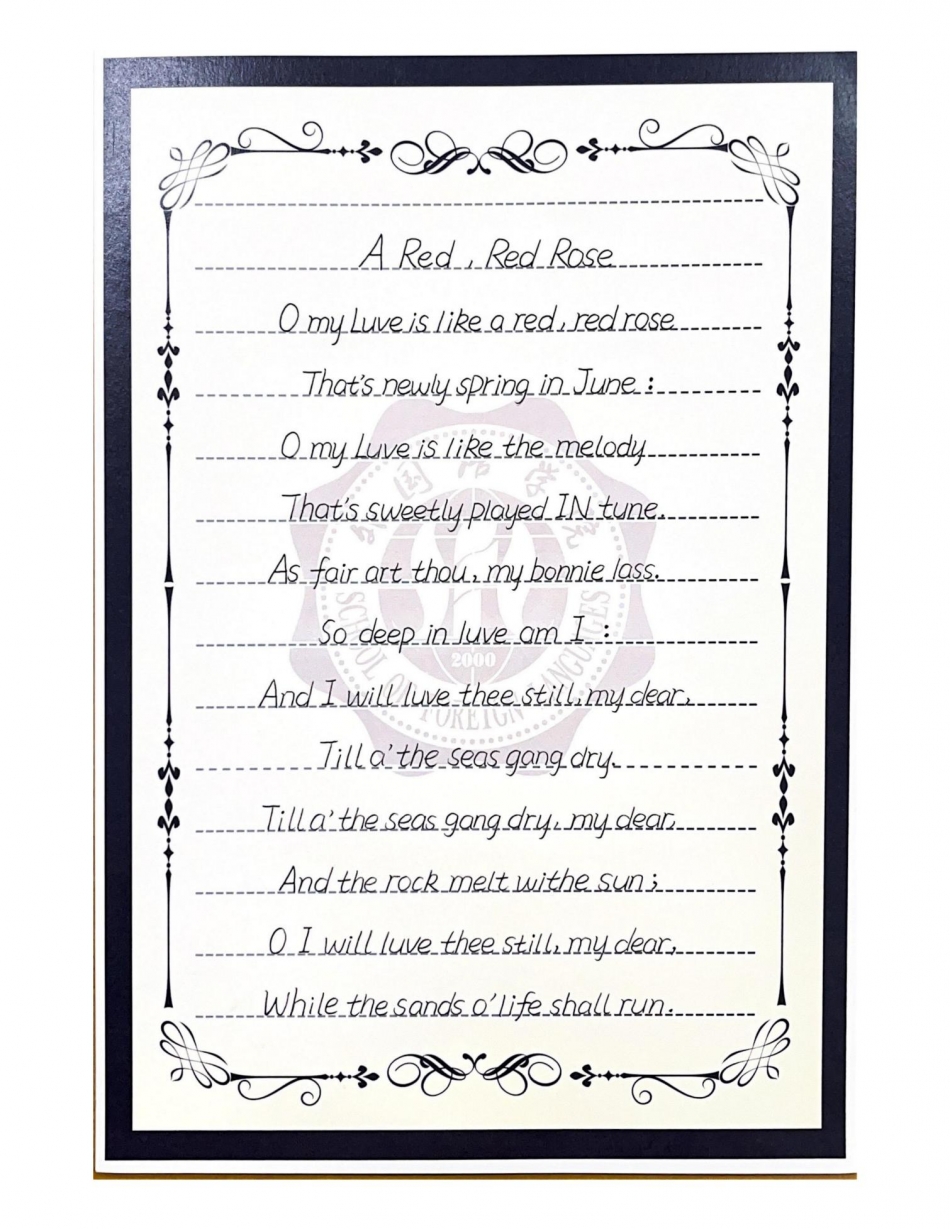 A Red, Red Rose
O my Luve is like a red, red rose
That's newly spring in June:
O my Luve is like the melody
That's sweetly played IN tune.
As fair art thou, my bonnie lass.
So deep in luve am I:
And I will luve thee still, my dear,
Till a' the seas gang dry.
Till a' the seas gang dry, my dear,
And the rock melt withe sun;
O I will luve thee still, my dear,
While the sands o' life shall run.
SCHOOL OF FOREIGN LANGUAGES
2000